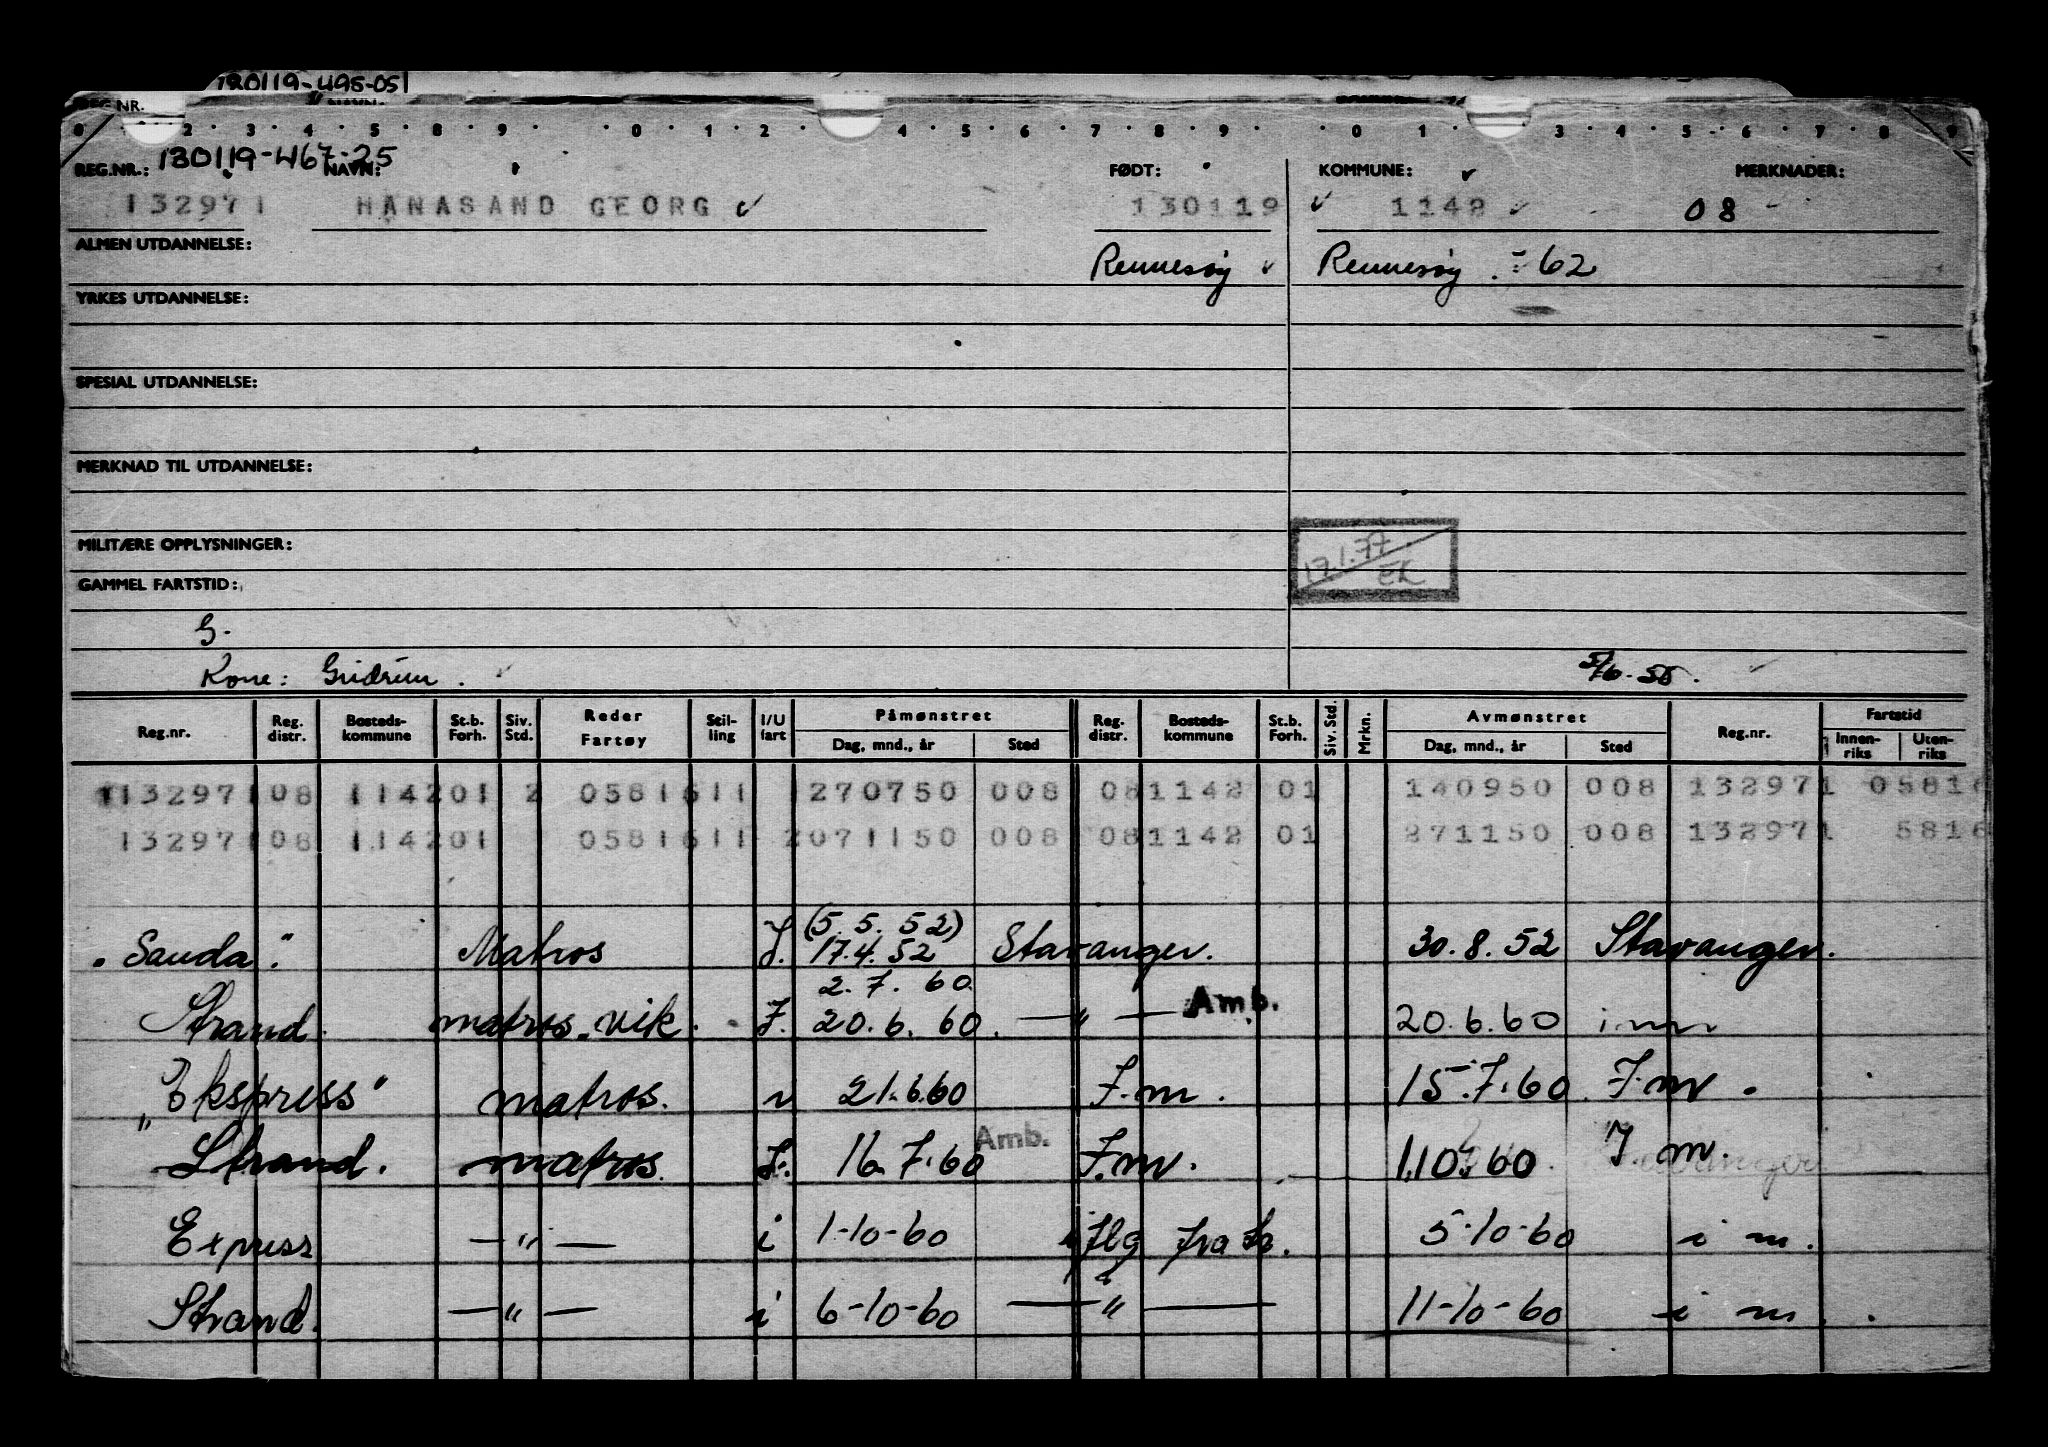 130119-495-05
REG.NR. NAVN:
0 2 3 4 5 8 9 0 1 2 4 5 6 7 8 9 0 1 3 4 5 6 7 8 9
130119-467-25
REG.NR.: NAVN: FØDT: KOMMUNE: MERKNADER:
132971 HANASAND GEORG ✓ 130119 ✓ 1142 ✓ 08
ALMEN UTDANNELSE: Rennesøy ✓ Rennesøy - 62
YRKES UTDANNELSE:
SPESIAL UTDANNELSE:
MERKNAD TIL UTDANNELSE:
MILITÆRE OPPLYSNINGER:
17.1.77
EK
GAMMEL FARTSTID:
G.
Kone: Gudrun. 5/6-58.
Reg.nr. Reg. distr. Bosteds-kommune St.b. Forh. Siv. Std. Reder Fartøy Stil-ling I/U fart Påmønstret Reg. distr. Bosteds-kommune St.b. Forh. Siv. Std. Mrkn. Avmønstret Reg.nr. Fartstid
Dag, mnd., år Sted Dag, mnd., år Sted Innen-riks Uten-riks
132971 08 1142 01 2 0581611 1 270750 008 08 1142 01 140950 008 132971 0581
132971 08 1142 01 0581611 2 071150 008 08 1142 01 271150 008 132971 5816
(5. 5. 52)
"Sauda". Matros I. 17.4.52 Stavanger. 30.8.52 Stavanger.
2. 7. 60.
Strand. matros. vik. I. 20.6.60. — " — Amb. 20.6.60 i.m
"Ekspress" matros. i 21.6.60 I.m. 15.7.60. I.m.
Strand. matros. I. 16.7.60 Amb. I.m. 1.10.60 I.m.
Express — " — i 1-10-60 iflg fra h. 5-10-60 i m.
Strand. — " — i 6-10-60 — " — 11-10-60 i m.